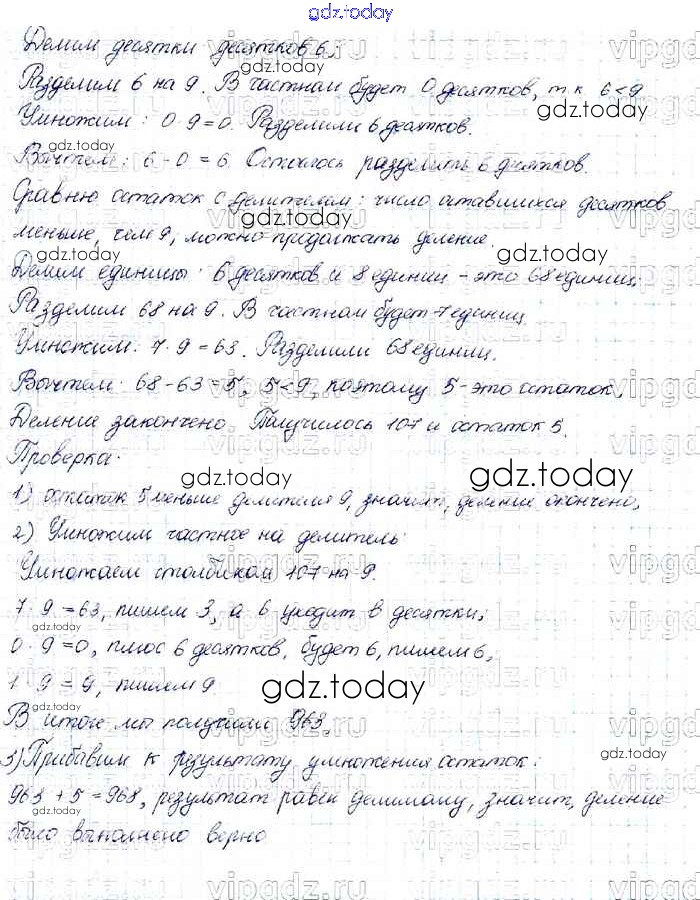 gdz.today
Делим десятки десятков 6.
Разделим 6 на 9. В частном будет 0 десятков, т к 6<9
Умножим : 0·9=0. Разделили 6 десятков.
Вычтем: 6-0=6 Осталось разделить 6 десятков.
Сравню остаток с делителем: число оставшихся десятков
меньше, чем 9, можно продолжать деление.
Делим единицы: 6 десятков и 8 единиц - это 68 единиц.
Разделим 68 на 9. В частном будет 7 единиц
Умножим: 7·9=63. Разделили 68 единиц.
Вычтем: 68-63=5, 5<9, поэтому 5-это остаток.
Деление закончено. Получилось 107 и остаток 5.
Проверка:
1) остаток 5 меньше делителя 9, значит, деление окончено,
2) Умножим частное на делитель:
Умножаем столбиком 107 на 9.
7·9=63, пишем 3, а 6 уходит в десятки;
0·9=0, плюс 6 десятков, будет 6, пишем 6,
1·9=9, пишем 9
В итоге мы получили 963.
3) Прибавим к результату умножения остаток:
963+5=968, результат равен делимому, значит, деление
было выполнено верно